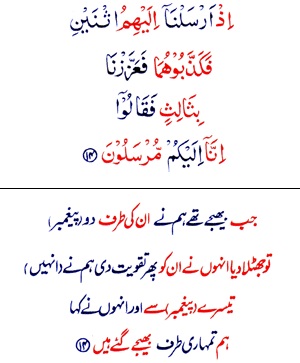 اِذْ اَرْسَلْنَاۤ اِلَیْهِمُ اثْنَیْنِ
فَكَذَّبُوْهُمَا فَعَزَّزْنَا
بِثَالِثٍ فَقَالُوْۤا
اِنَّاۤ اِلَیْكُمْ مُّرْسَلُوْنَ ﴿۱۴﴾
جب بھیجے تھے ہم نے ان کی طرف دو (پیغمبر)
تو جھٹلا دیا انہوں نے ان کو پھر تقویت دی ہم نے (انہیں)
تیسرے (پیغمبر) سے اور انہوں نے کہا
ہم تمہاری طرف بھیجے گئے ہیں ﴿۱۴﴾